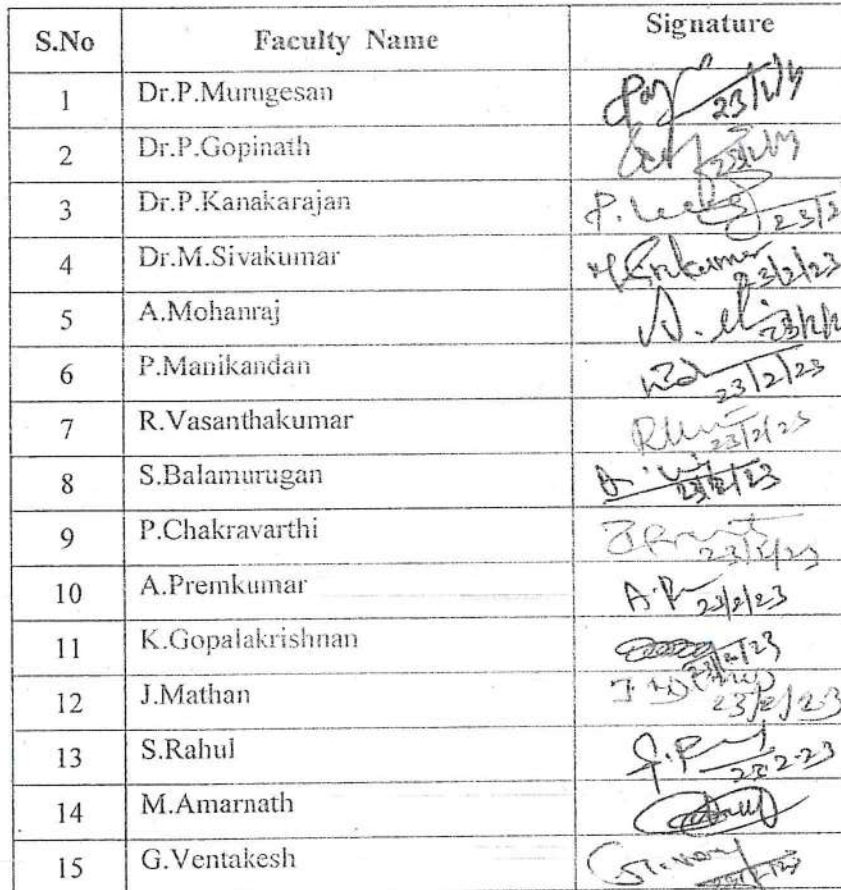 S.No Faculty Name Signature
1 Dr.P.Murugesan 23/2/23
2 Dr.P.Gopinath 23/2/23
3 Dr.P.Kanakarajan 23/2
4 Dr.M.Sivakumar M.Sivakumar 23/2/23
5 A.Mohanraj 23/2/2
6 P.Manikandan 23/2/23
7 R.Vasanthakumar 23/2/23
8 S.Balamurugan 23/2/23
9 P.Chakravarthi 23/2/23
10 A.Premkumar 23/2/23
11 K.Gopalakrishnan 23/2/23
12 J.Mathan 23/2/23
13 S.Rahul 23.2.23
14 M.Amarnath
15 G.Ventakesh 23/2/23